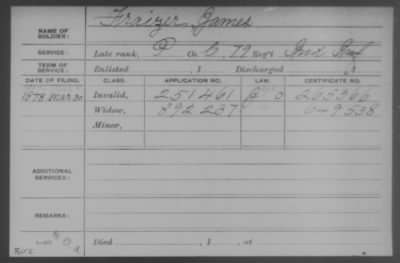 NAME OF SOLDIER: Fraizer James
SERVICE: Late rank, P Co. C, 79 Reg't Ind Inf
TERM OF SERVICE: Enlisted , 1 Discharged , 1
DATE OF FILING. CLASS. APPLICATION NO. LAW. CERTIFICATE NO.
1878 Mar 30 Invalid, 251461 265366
Widow, 892237 649538
Minor,
ADDITIONAL SERVICES:
REMARKS:
Died , 1 , at